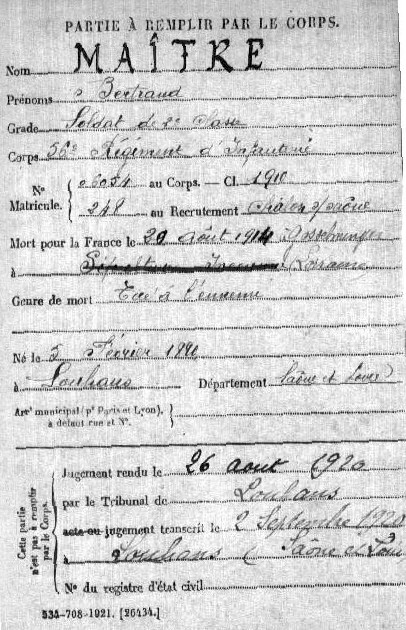 PARTIE À REMPLIR PAR LE CORPS.
Nom MAÎTRE
Prénoms Bertrand
Grade Soldat de 2e Classe
Corps 56e Régiment d'Infanterie
N° Matricule. { 06054 au Corps. — Cl. 1910
248 au Recrutement Chalon s/Saône
Mort pour la France le 20 août 1914
à Lorraine
Genre de mort Tué à l'ennemi
Né le 5 Février 1890
à Louhans Département Saône et Loire
Arr¹ municipal (pʳ Paris et Lyon), à défaut rue et N°. {
Cette partie n'est pas à remplir par le Corps. {
Jugement rendu le 26 août 1920
par le Tribunal de Louhans
acte ou jugement transcrit le 2 Septembre 1920
à Louhans (Saône et Loire
N° du registre d'état civil
534-708-1921. [26434.]